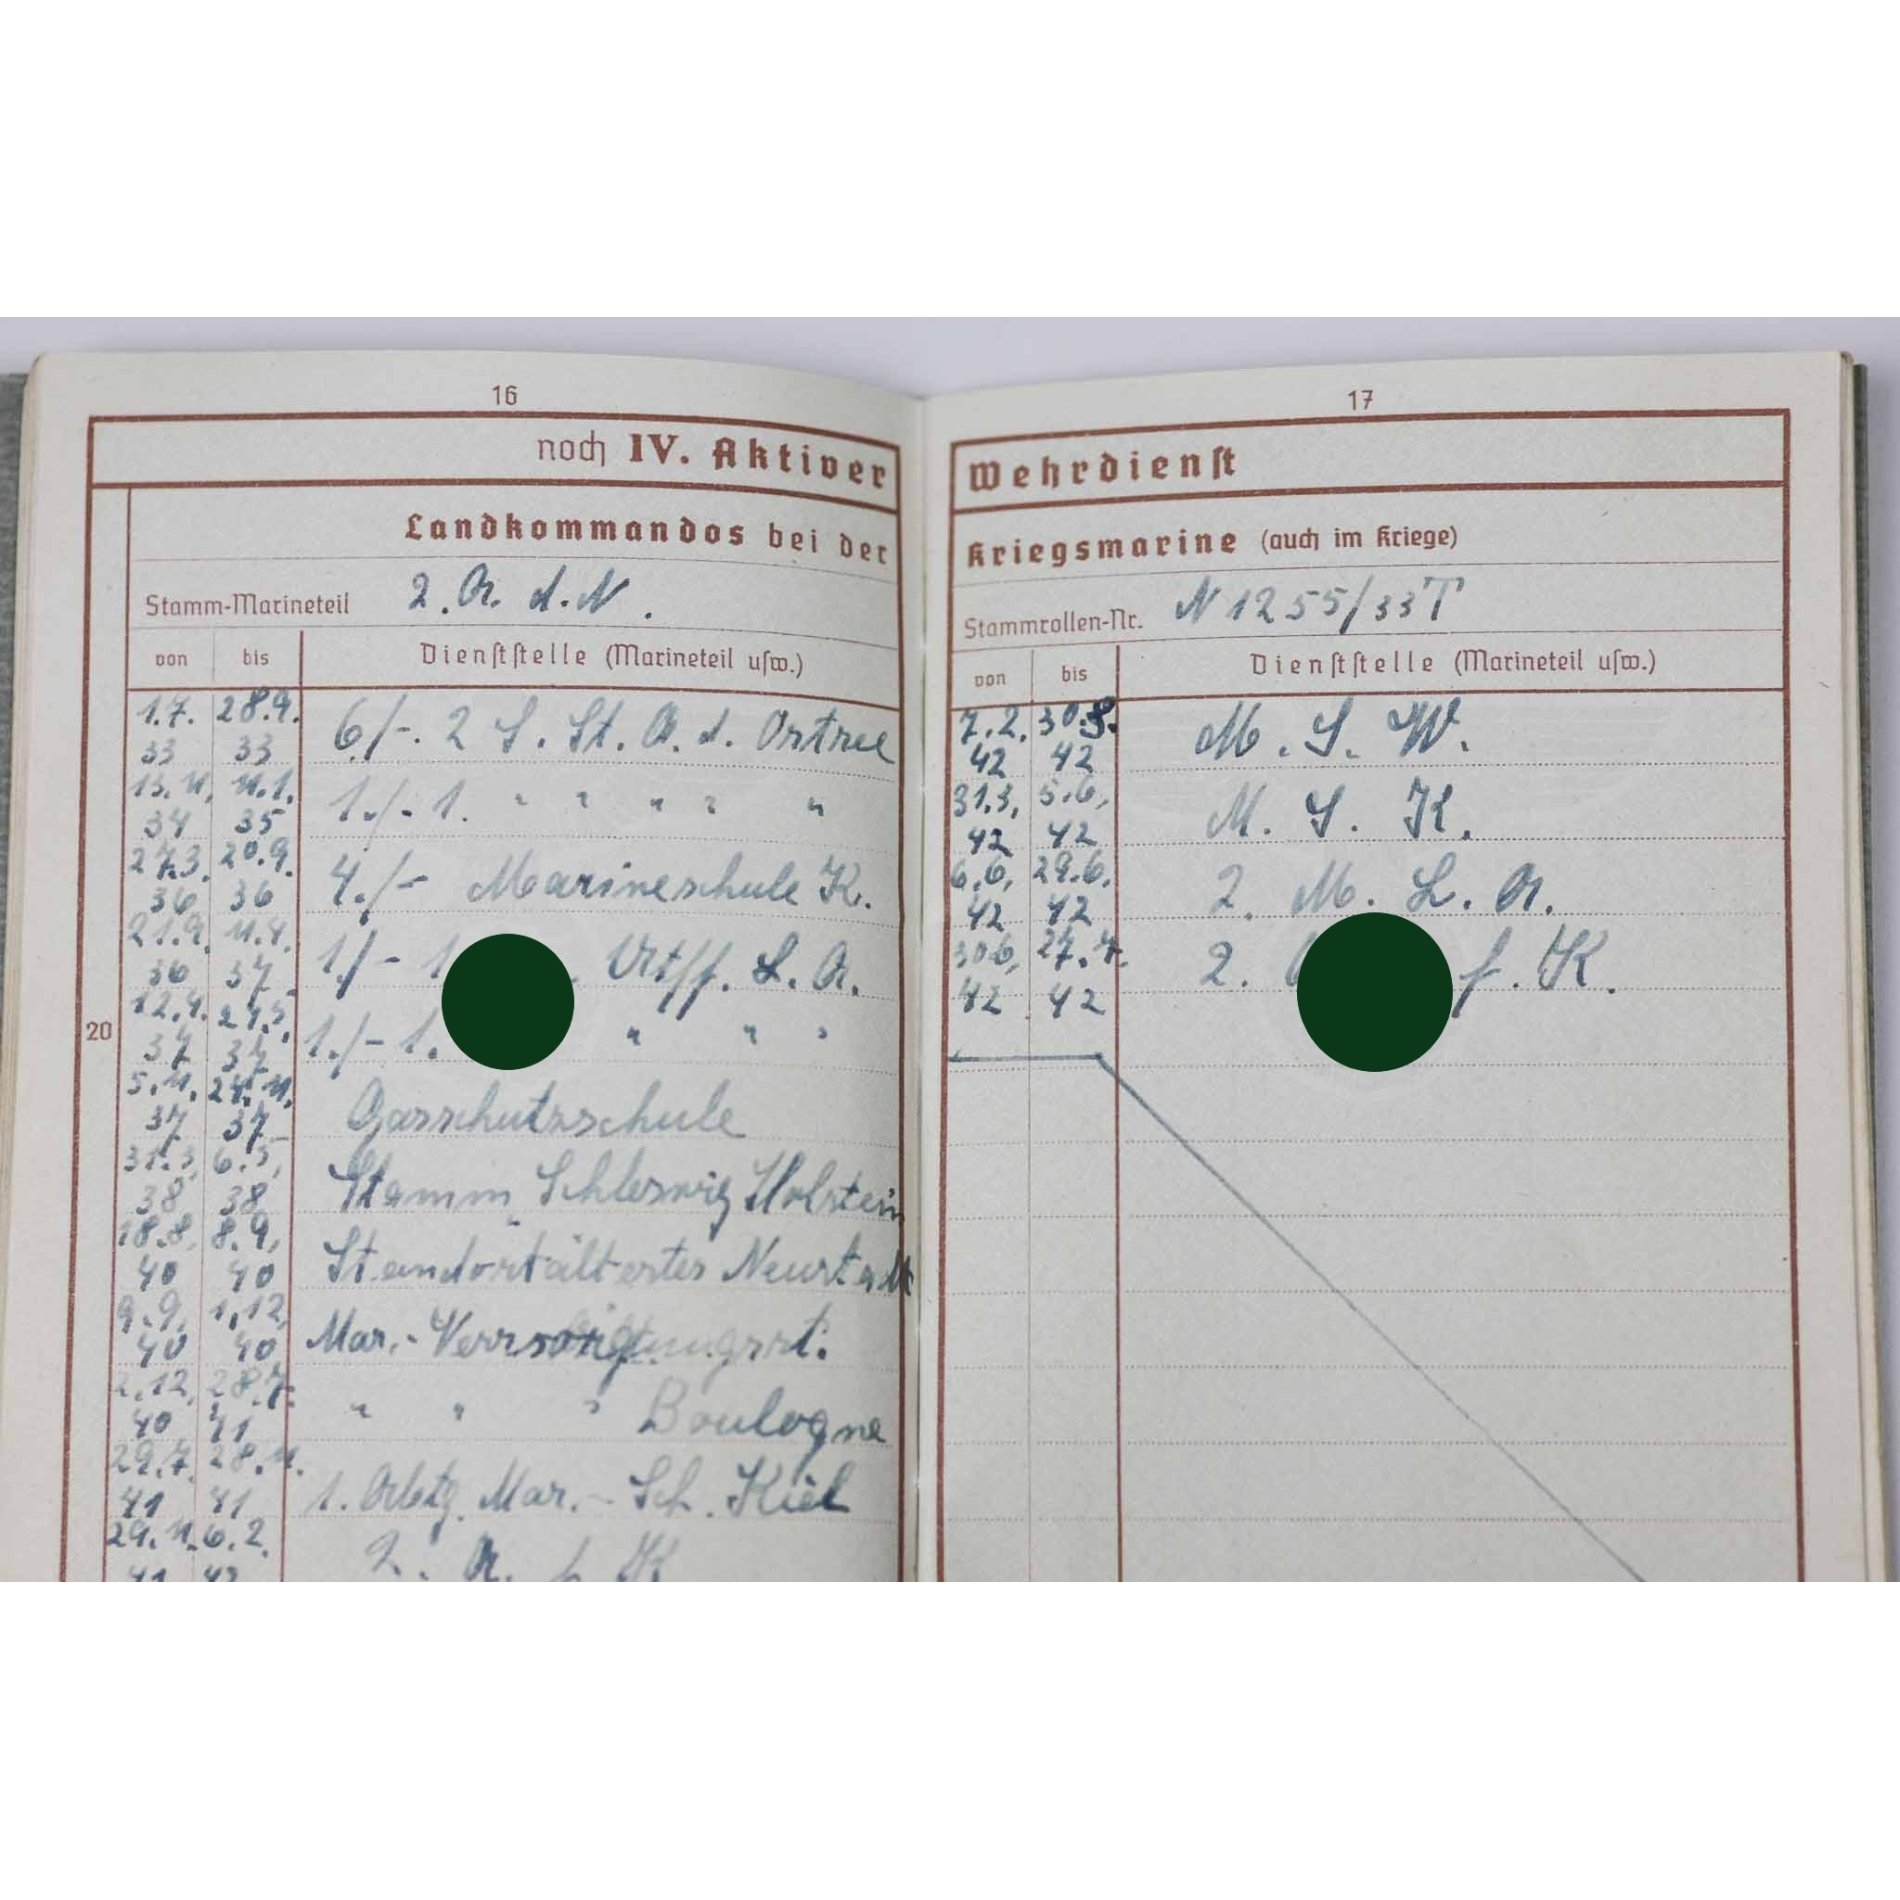 16
noch IV. Aktiver
Landkommandos bei der
Stamm-Marineteil 2. A. d. N.
von bis Dienststelle (Marineteil usw.)
1.7. 28.9. 6/-. 2 S. St. A. d. Ostsee
33 33
13.11. 11.1. 1./-. 1. " " " " "
34 35
27.3. 20.9. 4./- Marineschule K.
36 36
21.9. 11.4. 1./- 1 . Utff. L. A.
36 37
12.4. 24.5. 1./- 1. " " "
20
37 37
5.11. 24.11. Gasschutzschule
37 37
31.3. 6.5. Stamm Schleswig Holstein
38 38
18.8. 8.9. Standortältester Neustadt
40 40
9.9. 1.12. Mar.-
40 40
2.12. 28.7. " " " Boulogne
40 41
29.7. 28.11. 1. Mar.- Sch. Kiel
41 41
29.11. 6.2. 2. A. f. K
41 42
17
Wehrdienst
Kriegsmarine (auch im Kriege)
Stammrollen-Nr. N 1255/33T
von bis Dienststelle (Marineteil usw.)
7.2. M. S. W.
42 42
31.3. 5.6. M. S. K.
42 42
6.6. 29.6. 2. M. L. A.
42 42
30.6. 27.7. 2. f. K.
42 42